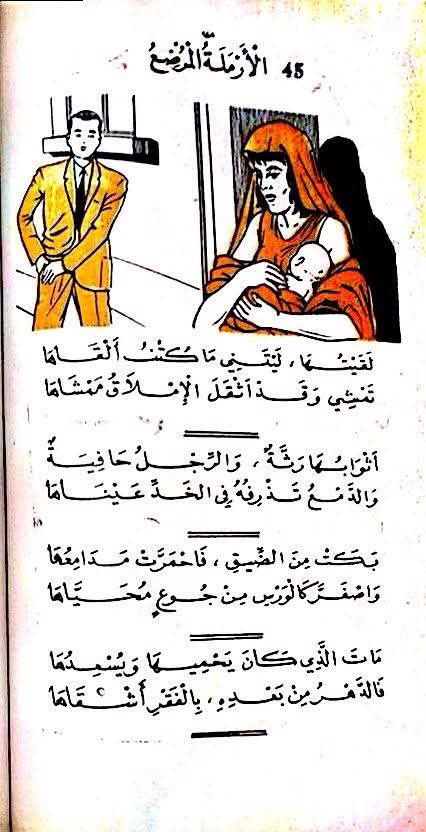 45 الْأَرْمَلَةُ الْمُرْضِعُ
لَقِيتُهَا، لَيْتَنِي مَا كُنْتُ أَلْقَاهَا
تَمْشِي وَقَدْ أَثْقَلَ الْإِمْلَاقُ مَمْشَاهَا
أَثْوَابُهَا رَثَّةٌ، وَالرِّجْلُ حَافِيَةٌ
وَالدَّمْعُ تَذْرِفُهُ فِي الْخَدِّ عَيْنَاهَا
بَكَتْ مِنَ الضِّيقِ، فَاحْمَرَّتْ مَدَامِعُهَا
وَاصْفَرَّ كَالْوَرْسِ مِنْ جُوعٍ مُحَيَّاهَا
مَاتَ الَّذِي كَانَ يَحْمِيهَا وَيُسْعِدُهَا
فَالدَّهْرُ مِنْ بَعْدِهِ، بِالْفَقْرِ أَشْقَاهَا